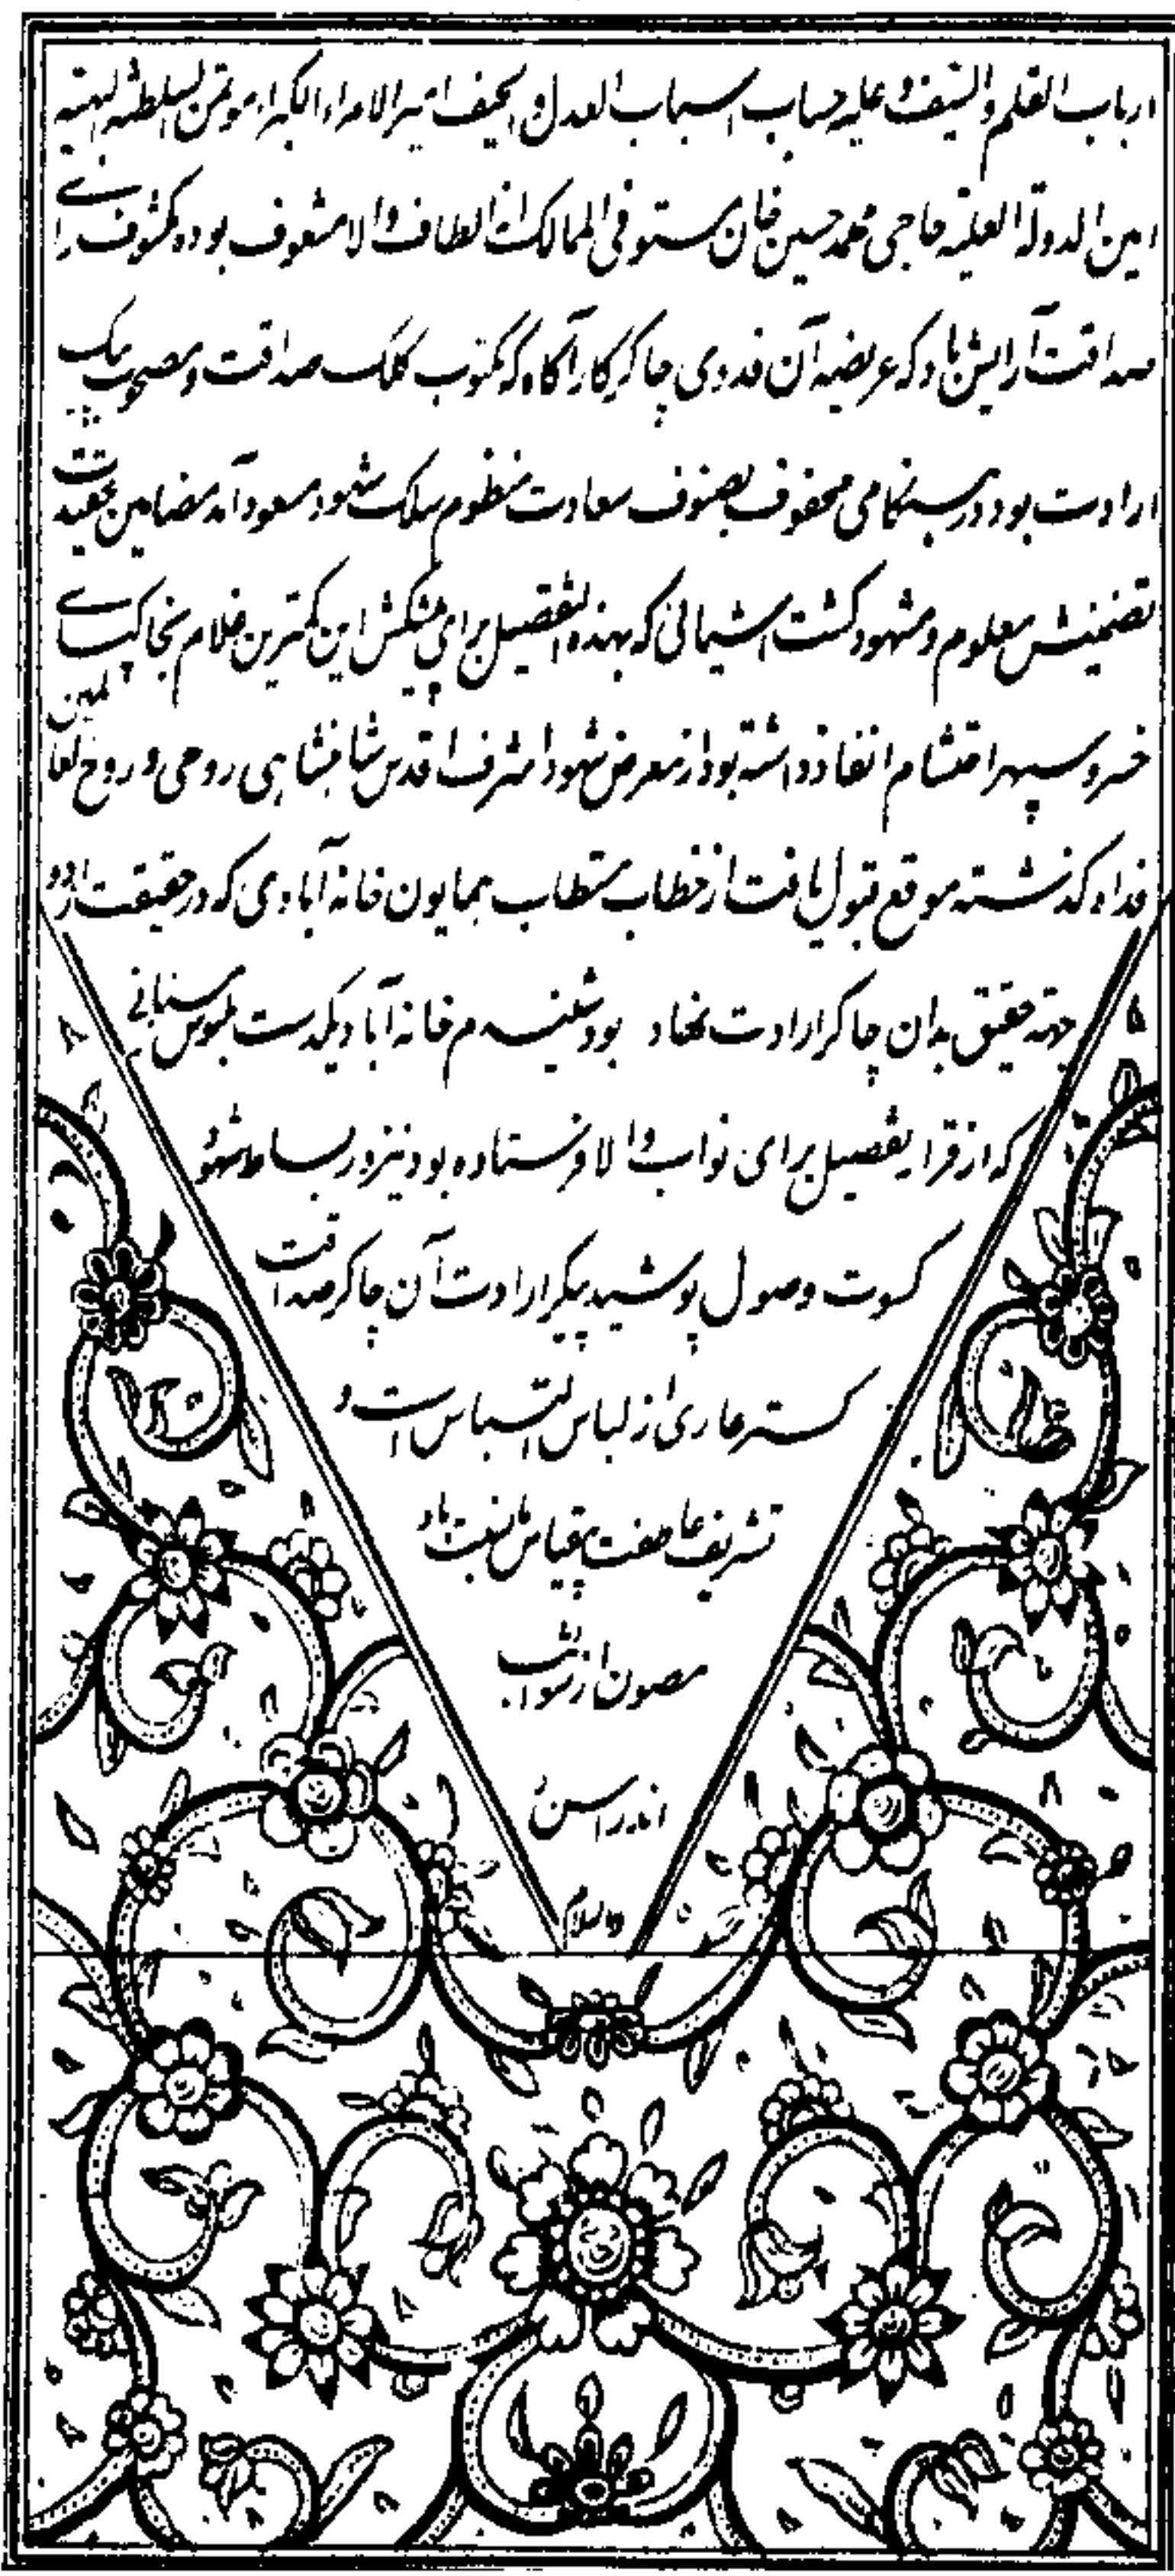 ارباب القلم و السیف و علیه حساب اسباب العدل و الحیف امیر الامراء الکبراء موتمن السلطنه البهیه
امین الدوله العلیه حاجی محمد حسین خان مستوفی الممالک از الطاف والا مشعوف بوده مکشوف رای
صداقت آرایش باد که عریضه آن فدوی چاکر کار آگاه که مکتوب کلک صداقت و مصحوب پیک
ارادت بود در هنگامی محفوف بصنوف سعادت منظوم سلک شهود مسعود آمد مضامین عقیدت
تضمینش معلوم و مشهود کشت اشیائی که بهذه التفصیل برای پیشکش این کمترین غلام بخاکپای
خسرو سپهر احتشام انفاذ داشته بود از معرض شهود اشرف اقدس شاهنشاهی روحی و روح العالمین
فداه کذشته موقع قبول یافت از خطاب مستطاب همایون خانه آبادی که در حقیقت از دو
جهته حقیق بدان چاکر ارادت نهاد بود شنیدم خانه آباد یکدست ملبوس
که از قرار تفصیل برای نواب والا فرستاده بود نیز در بساط شهود
کسوت وصول پوشید پیکر ارادت آن چاکر صداقت
کستر عاری از لباس التباس است و
تشریف عاطفت بیقیاس
مصون از شوائب
اندراس
والسلام